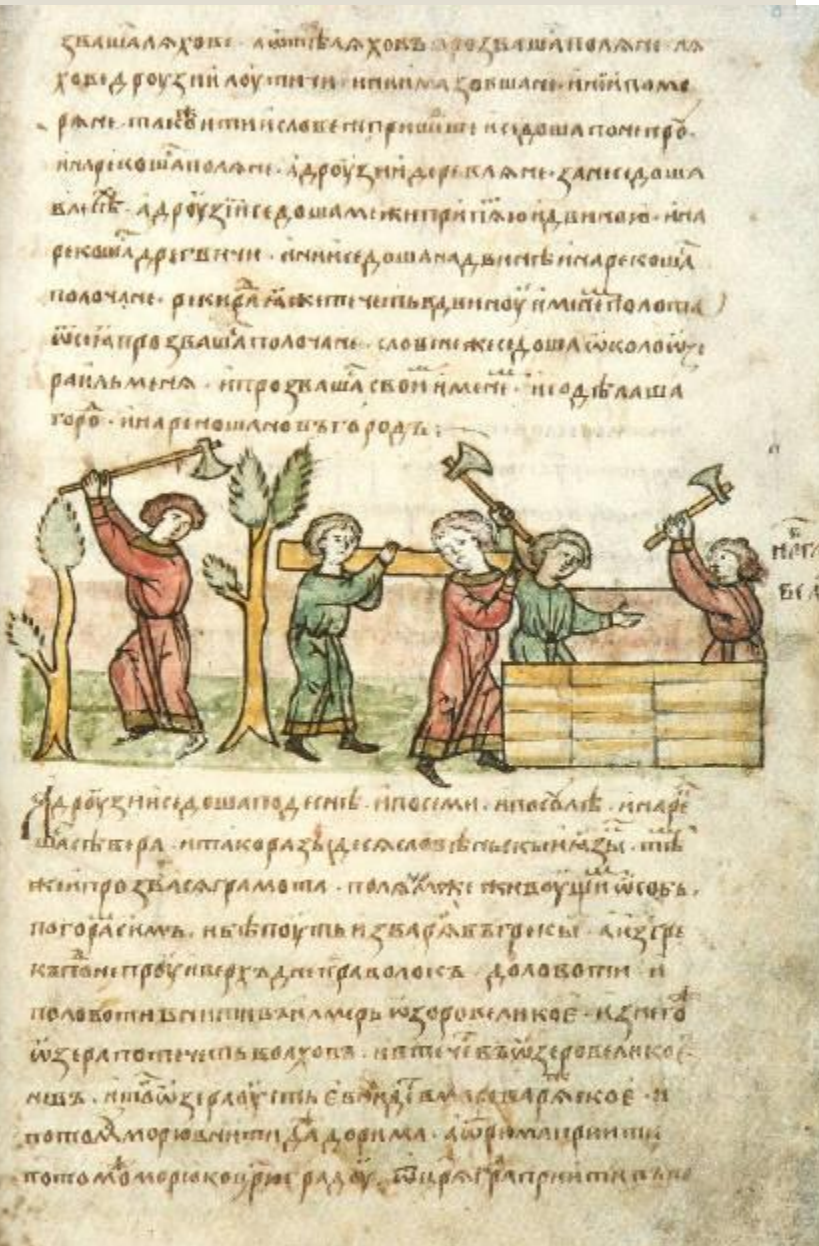 звашаляхове · аѿтѣ ляховъ прозвашаполяне · ля
хове дроузии лоутичи · инии мазовшане · инии помо
ряне · тако и тии словене пришеше и седоша по непрѹ ·
и нарекоша поляне · а дроузии деревляне · зане седоша
в лесѣ · а дроузии седоша межи припѧю и двиною · и на
рекоша дрегвичи · инии седоша на двинѣ и нарекошѧ
полочане · рекира яже течеть в двиноу именѣ полота
ѿ сеѧ прозвашаѧ полочане · словене же седоша ѡколо ѡзе
ра ильменя · и прозвашаѧ свои имене · и сдѣлаша
горо · и нарекоша новъгородъ :
А дроузии седоша по десне · и по семи · и по соулѣ · и наре
шаѧ сѣвера · и тако разыдеся словѣньскыи языкъ · тѣ
же и прозвася грамота · поляномже живоущи ѡсобь ·
по гора симъ · и бѣ поуть из варѧ въ грекы · а из гре
къ по непроу и верхъ днепра волокъ до ловоти · и
по ловоти внити въ илмерь ѡзоро великое · из него
ѡзера потечеть волховъ · и втече въ ѡзеро великое
нѡв · и то ѡзера оустье внидѣ в море варяское · и
по томоу морю внити да до рима · а ѿ рима прииити
по томоу морю ко црюграду · ѿ цряграда приити в по